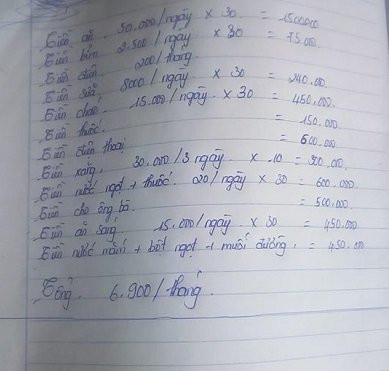 Tiền ăn. 50.000/ngày × 30 = 1500.000
Tiền bỉm 2.500/ngày × 30 = 75.000.
Tiền điện 200/tháng.
Tiền sữa 8000/ngày × 30 = 240.000
Tiền cháo, 15.000/ngày × 30 = 450.000.
Tiền thuốc. = 150.000
Tiền điện thoại = 600.000.
Tiền xăng, 30.000/3 ngày. × .10 = 300.000
Tiền nước ngọt + thuốc. 20/ngày × 30 = 600.000
Tiền cho ông bà. = 500.000.
Tiền ăn sáng. 15.000/ngày × 30 = 450.000
Tiền nước mắm + bột ngọt + muối đường, = 450.000
Tổng. 6.900/tháng.